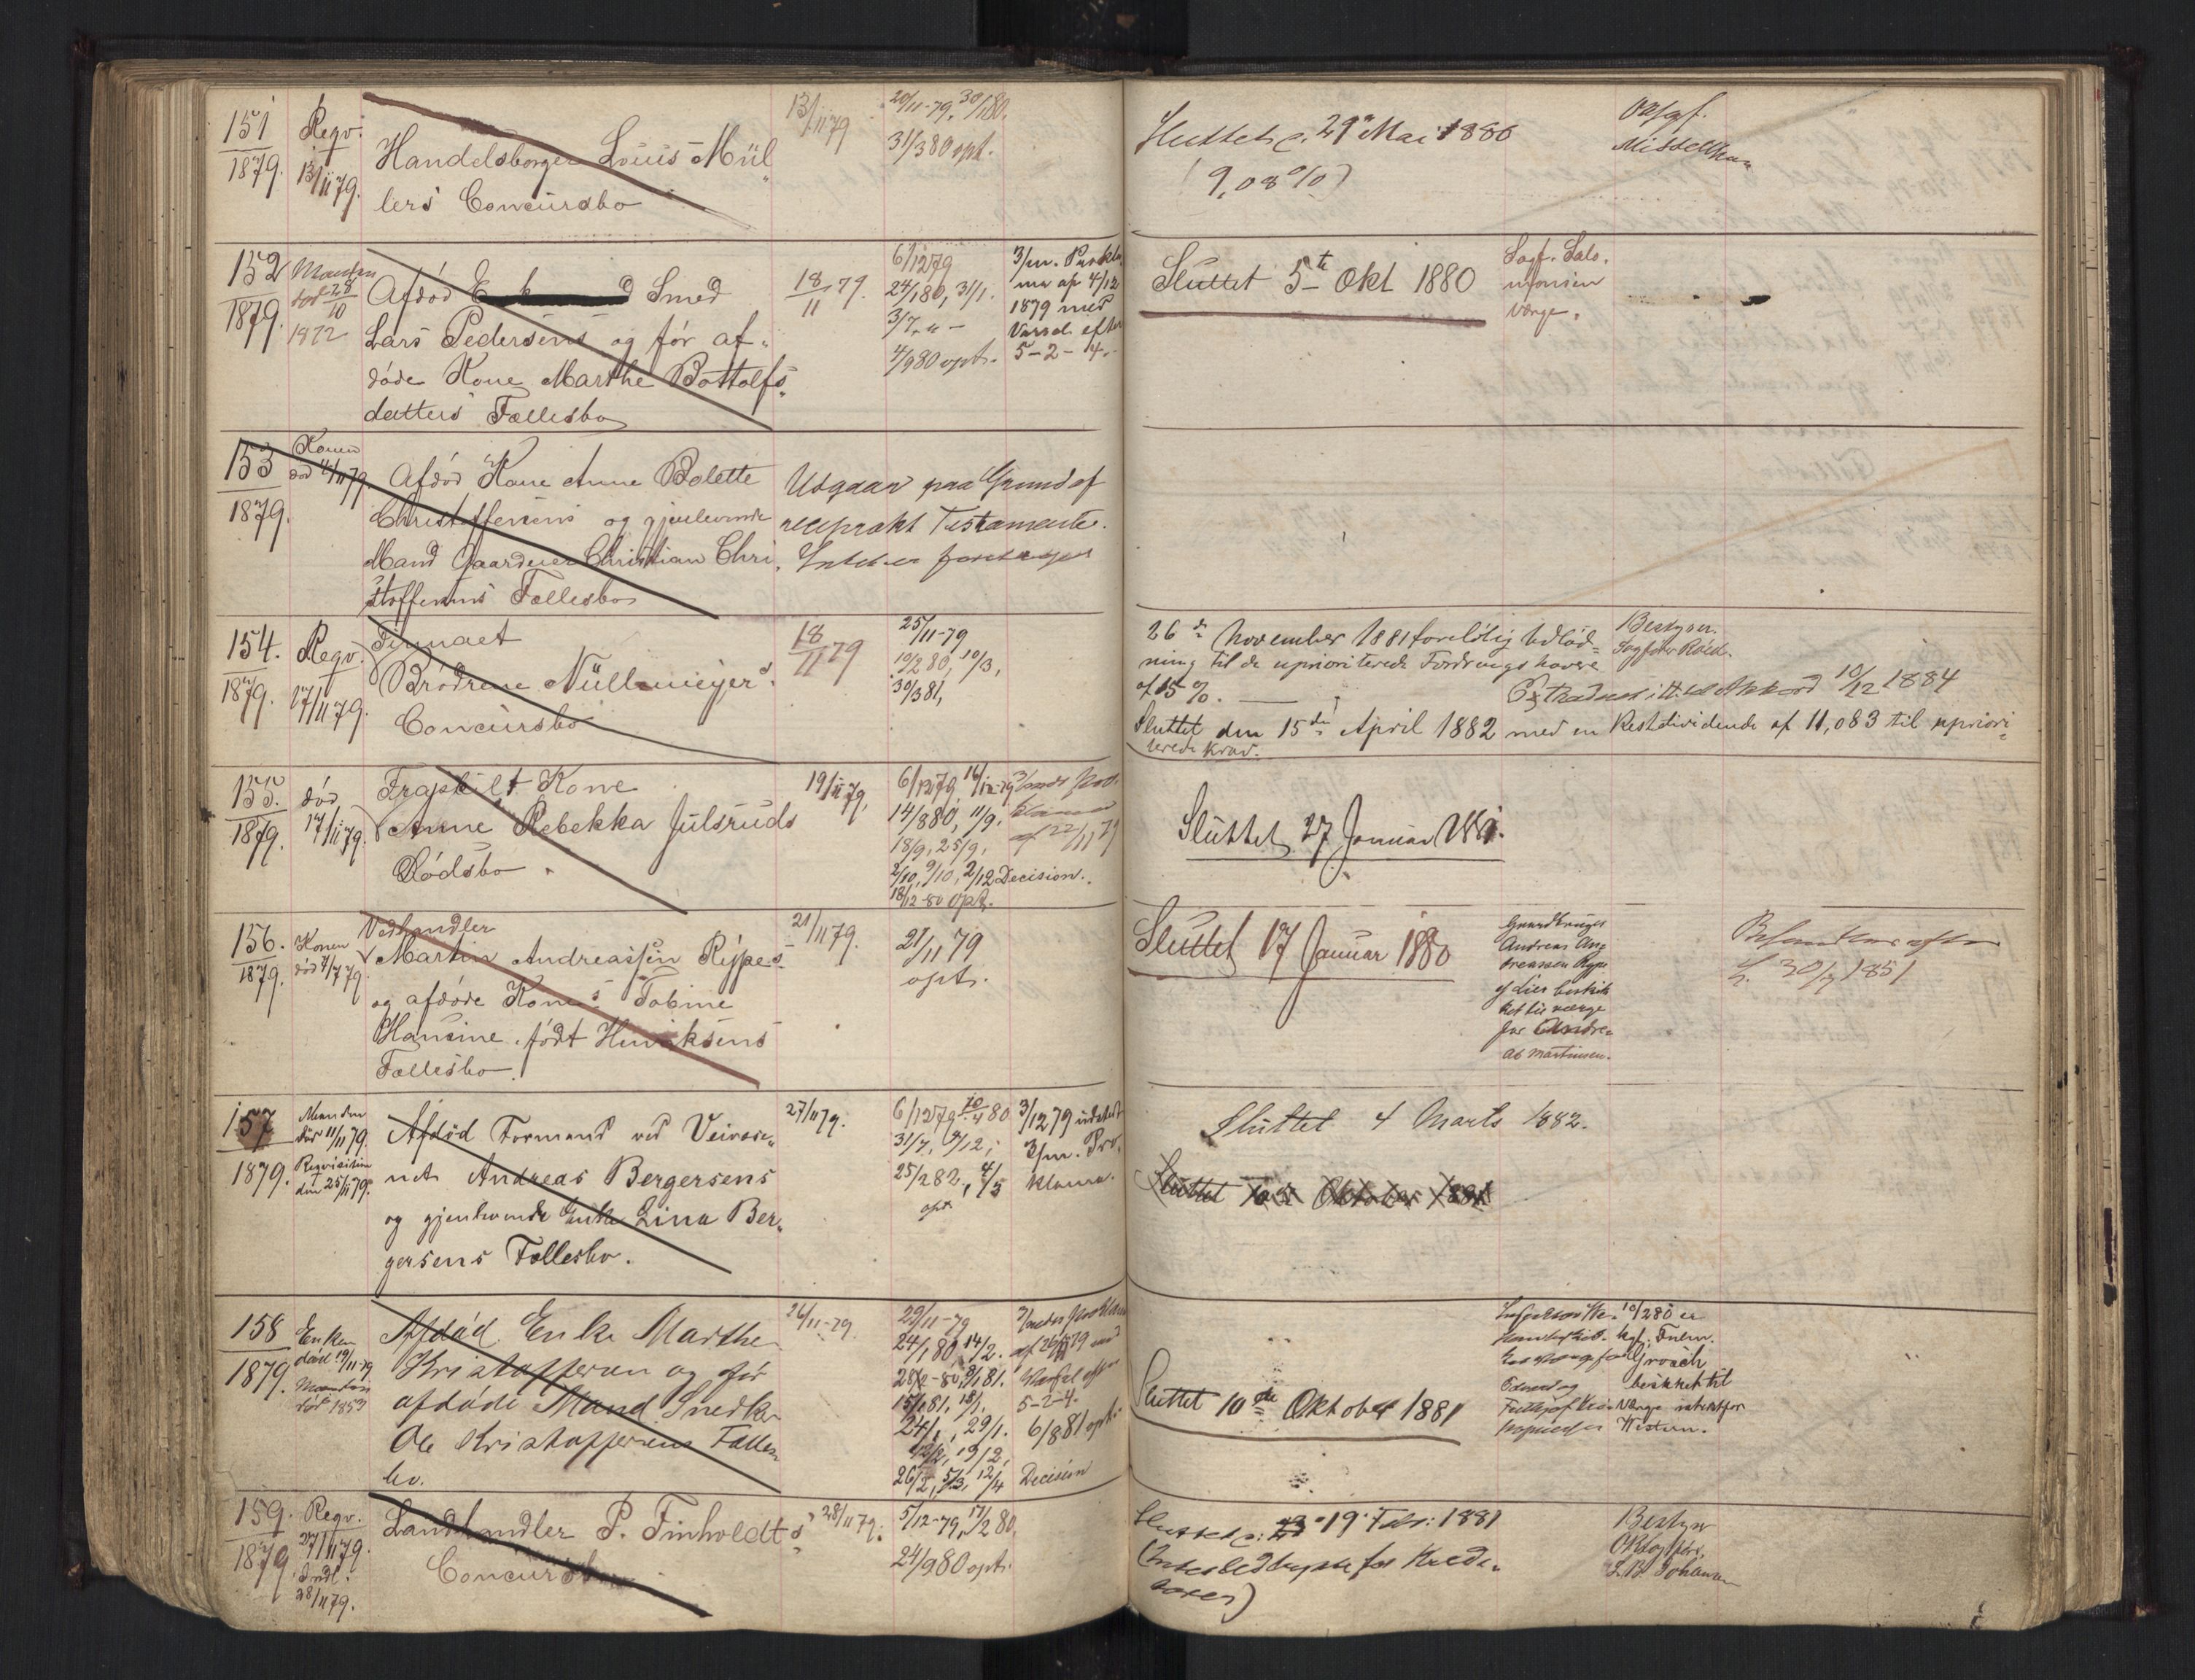 151
1879.
Reqv.
13/11 79.
Handelsborger Louis Mül
lers Concursbo
13/11 79
20/11-79, 30/1 80,
31/3 80 opt.
Sluttet d. 29 Mai 1880
(9,08 %)
152
1879.
Manden
død 28/10
1872
Afdød Smed
Lars Pedersens og før af-
døde Kone Marthe Bottolfs-
datters Fællesbo
18/11 79.
6/12 79
24/1 80, 31/1.
3/7, " -
4/9 80 opt.
3/m. Prokla
ma af 4/12
1879 med
Varsel efter
5-2-4.
Sluttet 5te Okt 1880
Sagf. Salo-
monsen
Værge.
153
1879.
Konen
død 4/11 79.
Afdød Kone Anne Bolette
Christoffersens og gjenlevende
Mand Gaardeier Christian Chri
stoffersens Fællesbo
Udgaar paa Grund af
reciprokt Testamente.
Intet er foretaget
154.
1879.
Reqv.
17/11 79.
Firmaet
Brødrene Nüllmeijers
Concursbo
18/11 79
25/11-79
10/2 80, 10/3,
30/3 81,
26de November 1881 foreløbig Udlod-
ning til de uprioriterede Fordringshavere
af 15 %.
Bestyrer.
Sagfører Roed.
10/12 1884
Sluttet den 15de April 1882 med en Restdividende af 11,083 til upriori-
terede Krav.
155.
1879.
død
17/11 79.
Fraskilt Kone
Anne Rebekka Julsruds
Dødsbo.
19/11 79,
6/12 79 16/12-79
14/8 80, 11/9.
18/9, 25/9,
2/10, 9/10, 2/12 Decision.
18/12-80 opt.
3/mds Pro-
klama
af 22/11 79
Sluttet 27 Januar 1881.
156.
1879.
Konen
død 4/7 79
Vedhandler
Martin Andreassen Rypes
og afdøde Kones Tobine
Hansine født Henriksens
Fællesbo.
21/11 79.
21/11 79
opt.
Sluttet 17 Januar 1880
Grundbruger
Andreas An-
dreassen Rype
af Lier beskik
ket til værge
for Andre-
as Martinsen.
L. 30/7 1851
157
1879.
Manden
død 11/11 79.
Reqvisition
den 25/11 79.
Afdød Formand ved Veivæse-
net Andreas Bergersens
og gjenlevende Enke Lina Ber-
gersens Fællesbo.
27/11 79.
6/12 79 10/4 80
31/7, 9/12,
25/2 82, 4/3
opt
3/12 79 udstedt
3/m. Pro-
klama.
Sluttet 4 Marts 1882.
Sluttet 10de Oktober 1881
158
1879.
Enken
død 19/11-79
Manden
død 1853
Afdød Enke Marthe
Kristoffersen og før
afdøde Mand Snedker
Ole Kristoffersens Fælles
bo.
26/11-79
29/11-79
24/1 80, 14/2.
28/2-80, 8/1 81.
15/1 81, 18/1.
24/1, 29/1.
12/2, 19/2,
26/2, 5/3, 12/4
3/mdrs Proklama
af 26/11 79 med
Varsel efter
5-2-4.
6/8 81 opt.
Decision
Sluttet 10de Oktober 1881
10/2 80 er
beskikket til
Værge
159.
1879
Reqv.
27/11 79.
Indl.
28/11 79.
Landhandler P. Finholdts
Concursbo
28/11 79.
5/12-79, 17/2 80,
24/9 80 opt.
Sluttet d: 19 Febr: 1881
(Intet Udbytte for Kredi-
torer)
Bestyrer
O.R.sagfører
L. B. Johansen